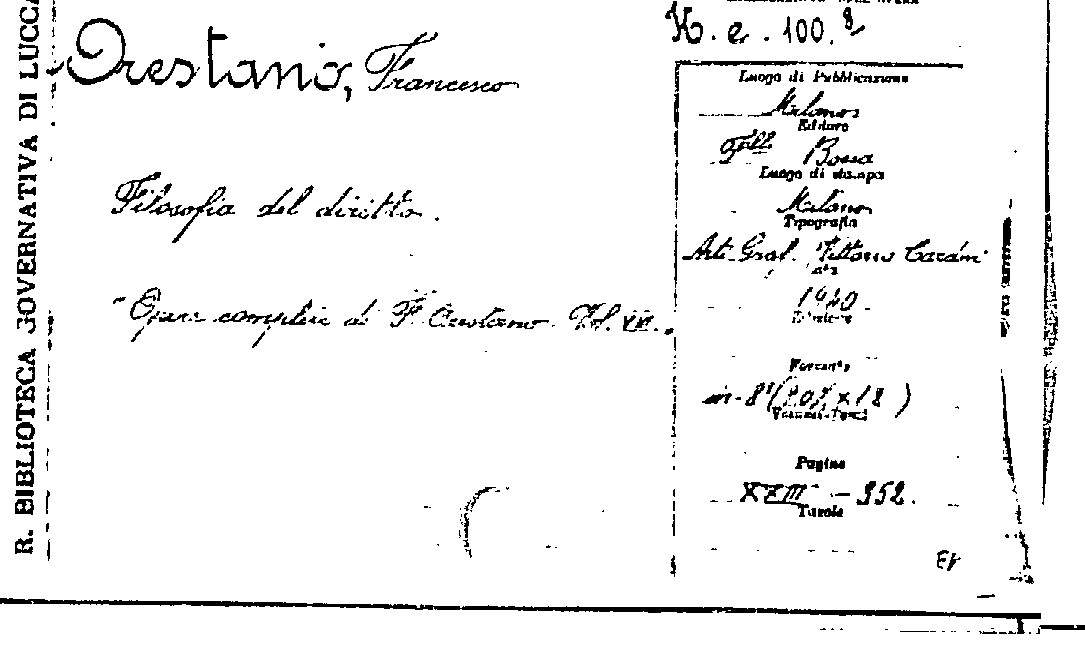 R. BIBLIOTECA GOVERNATIVA DI LUCCA
K. e. 100. 8
Orestano, Francesco
Filosofia del diritto.
Opere complete di F. Orestano Vol.
Luogo di Pubblicazione
Milano
Editore
F.lli Bocca
Luogo di stampa
Milano
Tipografia
Arti Graf. Vittorio Cardin
1940
Edizione
Formato
in-8° ( x 12 )
Pagine
XXIII - 352.
Tavole